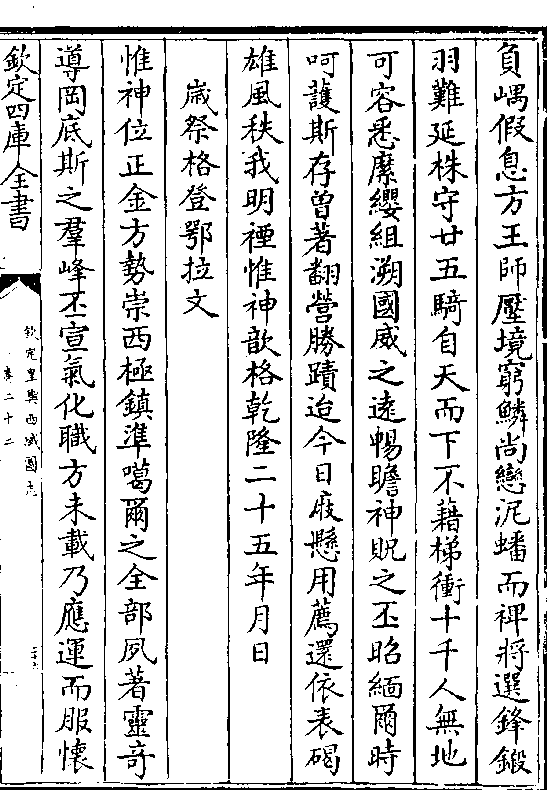 負嵎假息方王師壓境窮鱗尚戀泥蟠而禆將選鋒鍛
羽難延株守廿五騎自天而下不藉梯衝十千人無地
可容悉縻纓組溯國威之遠暢瞻神貺之丕昭緬爾時
呵護斯存曽著翻營勝蹟迨今日庪懸用薦還依表碣
雄風秩我明禋惟神歆格乾隆二十五年月日
歲祭格登鄂拉文
惟神位正金方勢崇西極鎮準噶爾之全部夙著靈竒
導岡底斯之羣峰丕宣氣化職方未載乃應運而服懷
欽定四庫全書
欽定皇輿西域圖志
卷二十二